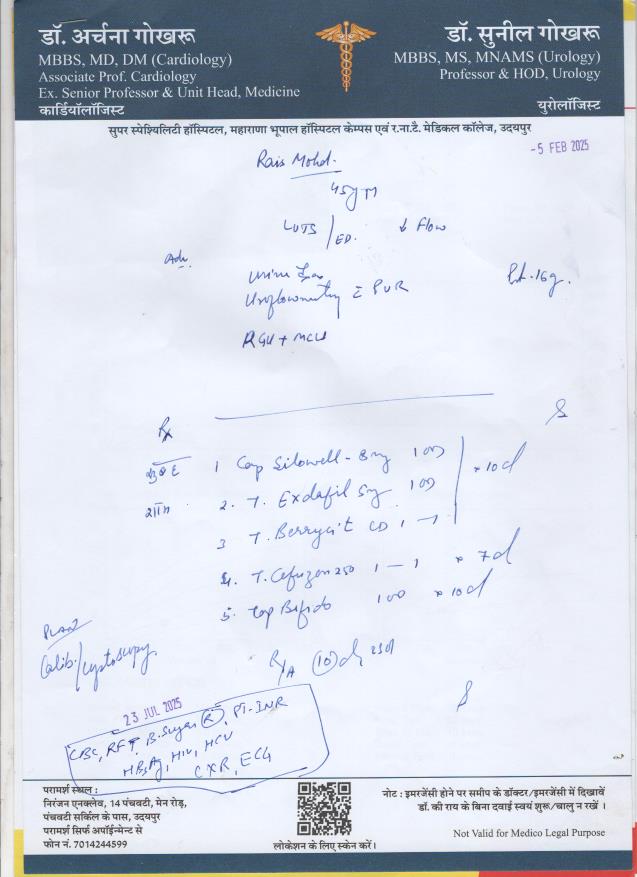 डॉ. अर्चना गोखरू
MBBS, MD, DM (Cardiology)
Associate Prof. Cardiology
Ex. Senior Professor & Unit Head, Medicine
कार्डियॉलॉजिस्ट
डॉ. सुनील गोखरू
MBBS, MS, MNAMS (Urology)
Professor & HOD, Urology
युरोलॉजिस्ट
सुपर स्पेश्यिलिटी हॉस्पिटल, महाराणा भूपाल हॉस्पिटल केम्पस एवं र.ना.टै. मेडिकल कॉलेज, उदयपुर
-5 FEB 2025
Rais Mohd.
45y M
LUTS / ED. ↓ Flow
Adv.
Uroflowmetry c̄ PVR
RGU + MCU
Rx
1 Cap Silowell-8mg 1 OD
2. T. Exdafil 5mg 1 OD
3 T. Berrycit CD 1-1
x 10d
4. T. Cefuzon 250 1-1 x 7d
5. Cap Bifido 1 OD x 10d
PLAN
Calib./Cystoscopy
R/A (10)d
23 JUL 2025
CBC, RFT, B.Sugar (R), PT-INR
HBsAg, HIV, HCV
CXR, ECG
परामर्श स्थल :
निरंजन एनक्लेव, 14 पंचवटी, मेन रोड़,
पंचवटी सर्किल के पास, उदयपुर
परामर्श सिर्फ अपॉईन्मेन्ट से
फोन नं. 7014244599
लोकेशन के लिए स्केन करें।
नोट : इमरजेंसी होने पर समीप के डॉक्टर/इमरजेंसी में दिखावें
डॉ. की राय के बिना दवाई स्वयं शुरू/चालु न रखें ।
Not Valid for Medico Legal Purpose